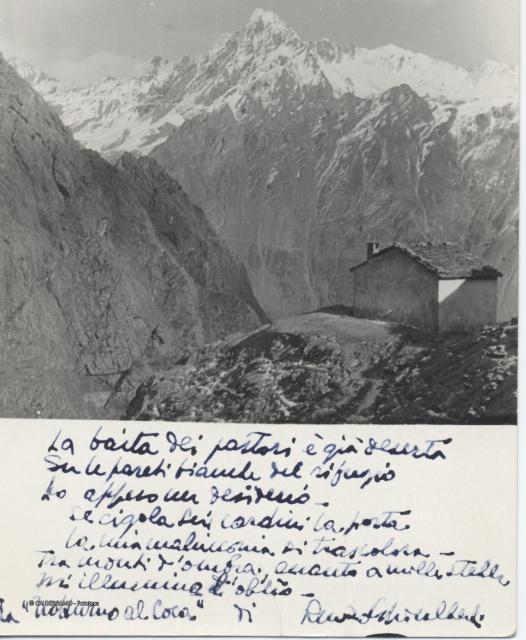 La baita dei pastori è già deserta
Sulle pareti bianche del rifugio
ho appeso un desiderio –
Se cigola sui cardini la porta
la mia malinconia si trascolora –
Tra monti d'ombra, quanto a mille stelle
m'illumina d'oblio –
"Notturno al Coca" di